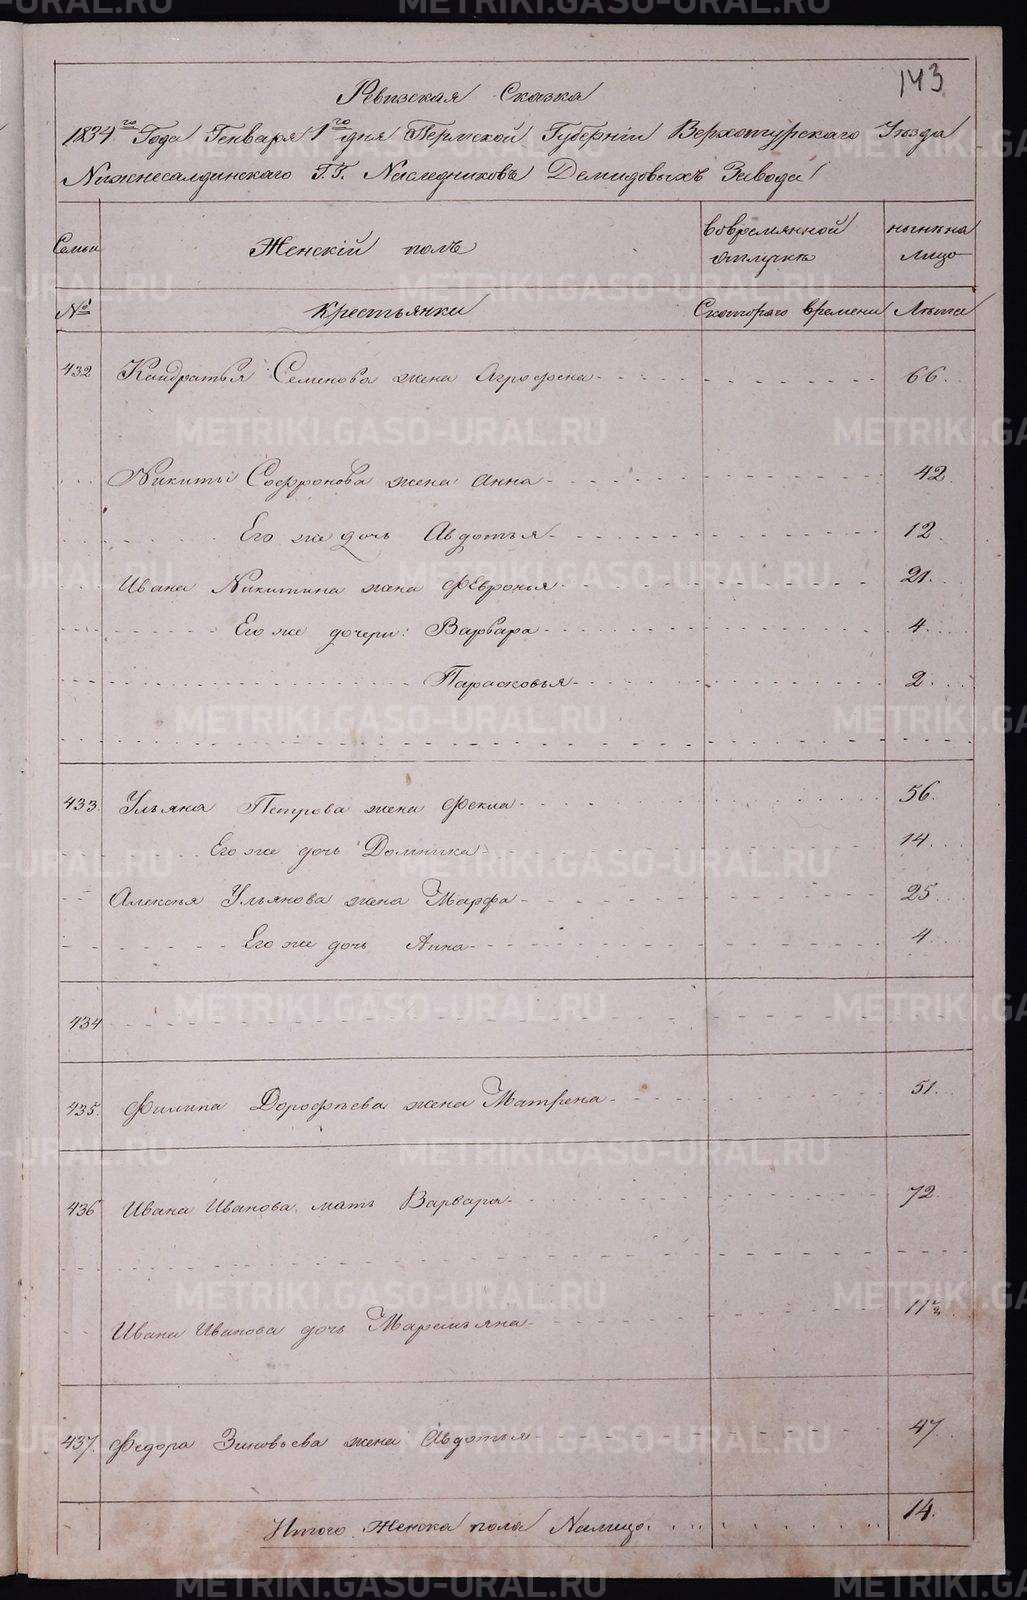 143
Ревизская Сказка
1834го Года Генваря 1го дня Пермской Губерніи Верхотурскаго Уезда
Нижнесалдинскаго Г.Г. Наследниковъ Демидовыхъ Завода
Семьи Женскій полъ вовремянной отлучкѣ нынѣ на лицо
№ Крестьянки Скотораго времени Лѣта
432 Кандратья Семенова жена Агрофена 66.
Никиты Софронова жена Анна 42.
Его же дочь Авдотья 12
Ивана Никитина жена Февронья 21.
Его же дочери: Варвара 4.
Парасковья 2.
433. Ульяна Петрова жена Фекла 56.
Его же дочь Домника 14.
Алексея Ульянова жена Марфа 25
Его же дочь Анна 4
434
435. Филипа Дорофѣева жена Матрена 51.
436 Ивана Иванова мать Варвара 72.
Ивана Иванова дочь Маремьяна 11½
437. Федора Зиновьева жена Авдотья 47
Итого Женска пола Налицо. 14.
METRIKI.GASO-URAL.RU